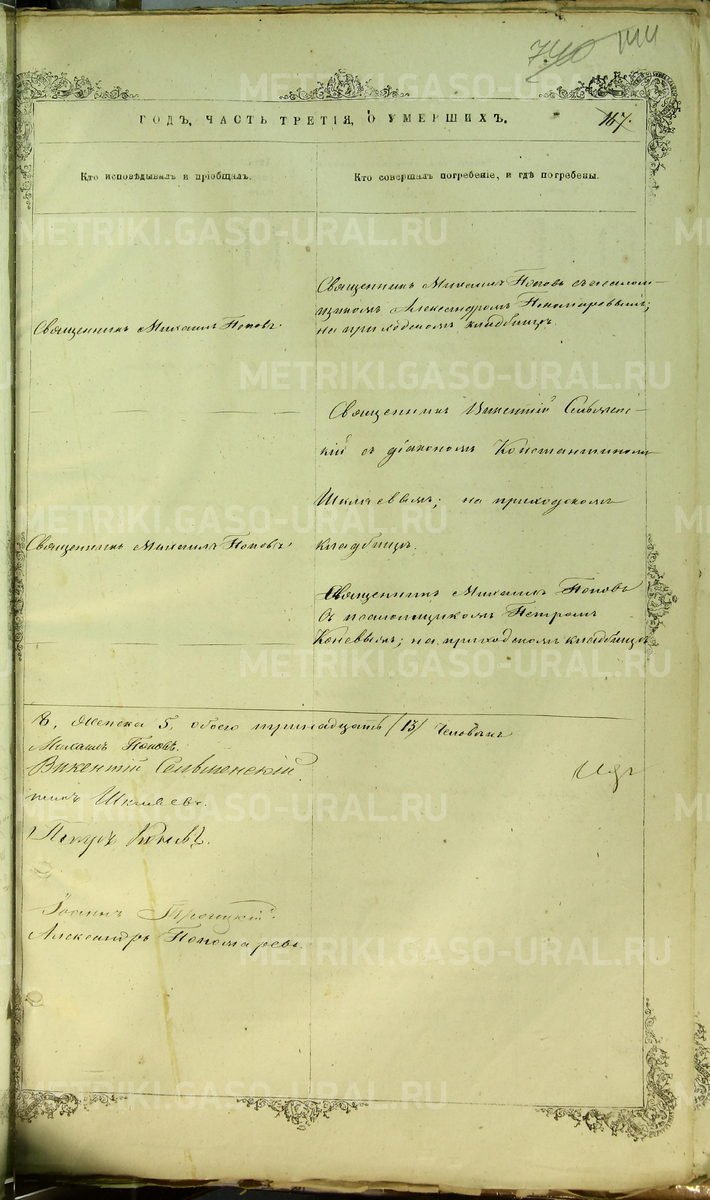 740
ГОДЪ, ЧАСТЬ ТРЕТІЯ, О УМЕРШИХЪ.
167.
Кто исповѣдывалъ и пріобщалъ.
Кто совершалъ погребеніе, и гдѣ погребены.
Священникъ Михаилъ Поповъ.
Священникъ Михаилъ Поповъ съ псалом-
щикомъ Александромъ Пономаревымъ;
на приходскомъ кладбищѣ.
Священникъ Михаилъ Поповъ.
Священникъ Викентій Сельмен-
скій съ діакономъ Константиномъ
Шкляевымъ; на приходскомъ
кладбищѣ.
Священникъ Михаилъ Поповъ
съ псаломщикомъ Петромъ
Коневымъ; на приходскомъ кладбищѣ
8, женска 5, обоего тринадцать /13/ человѣкъ
Михаилъ Поповъ.
Викентій Сельменскій.
тинъ Шкляевъ.
Петръ Коневъ.
Іоаннъ Троицкій.
Александръ Пономаревъ.
METRIKI.GASO-URAL.RU